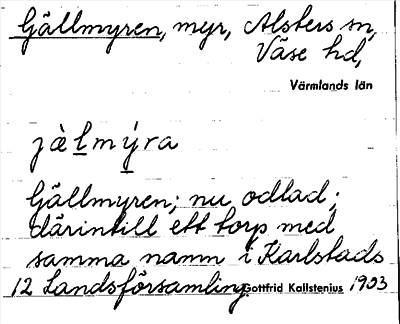 Gällmyren, myr, Alsters sn,
Väse hd,
Värmlands län
jälmýra
Gällmyren; nu odlad;
därintill ett torp med
samma namn i Karlstads
12 Landsförsamling. Gottfrid Kallstenius 1903